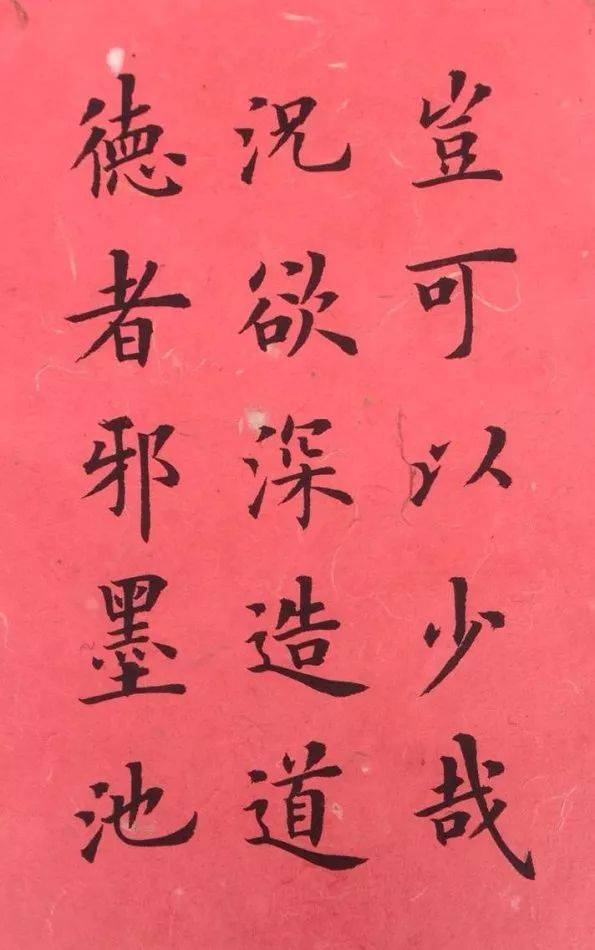 豈可以少哉
况欲深造道
徳者邪墨池